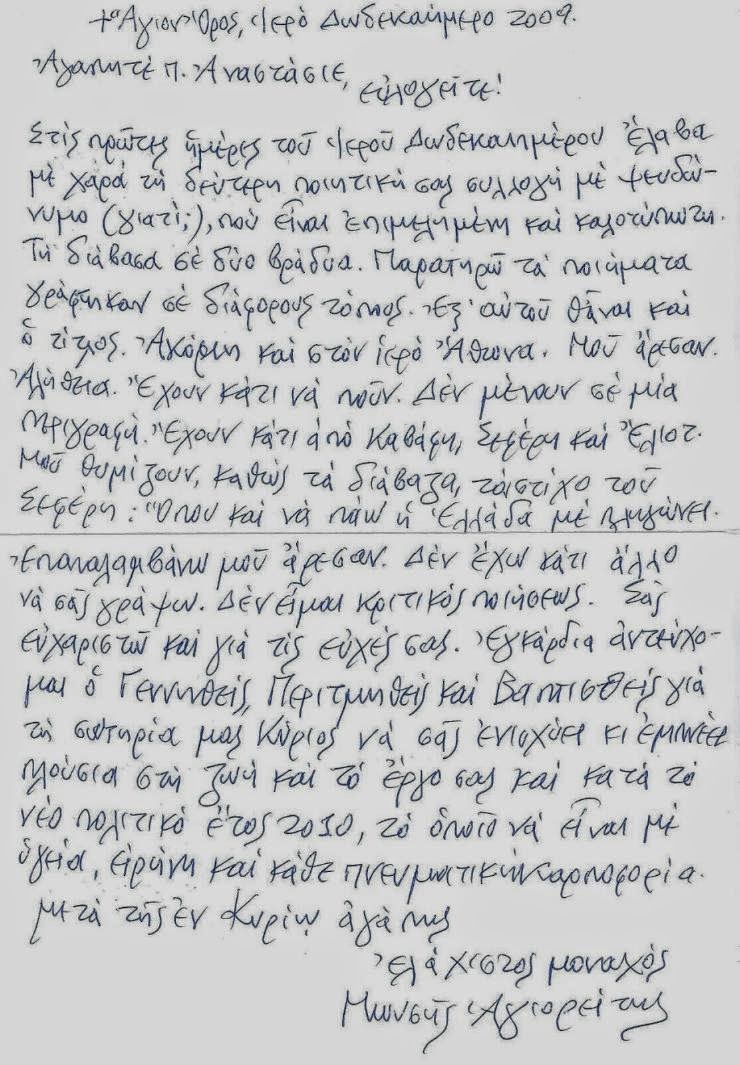 + Ἅγιον Ὄρος, Ἱερὸ Δωδεκαήμερο 2009.
Ἀγαπητὲ π. Ἀναστάσιε,
εὐλογεῖτε!
Στὶς πρῶτες ἡμέρες τοῦ Ἱεροῦ Δωδεκαημέρου ἔλαβα
μὲ χαρὰ τὴ δεύτερη ποιητική σας συλλογὴ μὲ ψευδώ-
νυμο (γιατί;), ποὺ εἶναι ἐπιμελημένη καὶ καλοτύπωτη.
Τὴ διάβασα σὲ δύο βράδυα. Παρατηρῶ τὰ ποιήματα
γράφτηκαν σὲ διάφορους τόπους. Ἐξ' αὐτοῦ θἆναι καὶ
ὁ τίτλος. Ἀκόμη καὶ στὸν ἱερὸ Ἄθωνα. Μοῦ ἄρεσαν.
Ἀλήθεια. Ἔχουν κάτι νὰ ποῦν. Δὲν μένουν σὲ μία
περιγραφή. Ἔχουν κάτι ἀπὸ Καβάφη, Σεφέρη καὶ Ἔλιοτ.
Μοῦ θυμίζουν, καθὼς τὰ διάβαζα, τὸ στίχο τοῦ
Σεφέρη: Ὅπου καὶ νὰ πάω ἡ Ἑλλάδα μὲ πληγώνει.
Ἐπαναλαμβάνω μοῦ ἄρεσαν. Δὲν ἔχω κάτι ἄλλο
νὰ σᾶς γράψω. Δὲν εἶμαι κριτικὸς ποιήσεως. Σᾶς
εὐχαριστῶ καὶ γιὰ τὶς εὐχές σας. Ἐγκάρδια ἀντεύχο-
μαι ὁ Γεννηθείς, Περιτμηθεὶς καὶ Βαπτισθεὶς γιὰ
τὴ σωτηρία μας Κύριος νὰ σᾶς ἐνισχύει κι ἐμπνέει
πλούσια στὴ ζωὴ καὶ τὸ ἔργο σας καὶ κατὰ τὸ
νέο πολιτικὸ ἔτος 2010, τὸ ὁποῖο νὰ εἶναι μὲ
ὑγεία, εἰρήνη καὶ κάθε πνευματικὴ καρποφορία.
Μετὰ τῆς ἐν Κυρίῳ ἀγάπης
Ἐλάχιστος μοναχὸς
Μωυσῆς Ἁγιορείτης